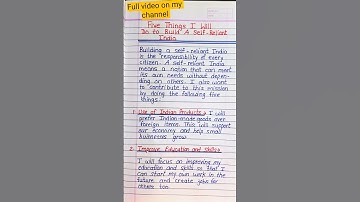 Full video on my
channel
Five Things I Will
Do to Build A Self-Reliant
India
Building a self-reliant India
is the responsibility of every
citizen. A self-reliant India
means a nation that can meet
its own needs without depen-
ding on others. I also want
to contribute to this mission
by doing the following five
things:
1. Use of Indian Products: I will
prefer Indian-made goods over
foreign items. This will support
our economy and help small
businesses grow.
2. Improve Education and Skills:
I will focus on improving my
education and skills so that I
can start my own work in the
future and create jobs for
others too.